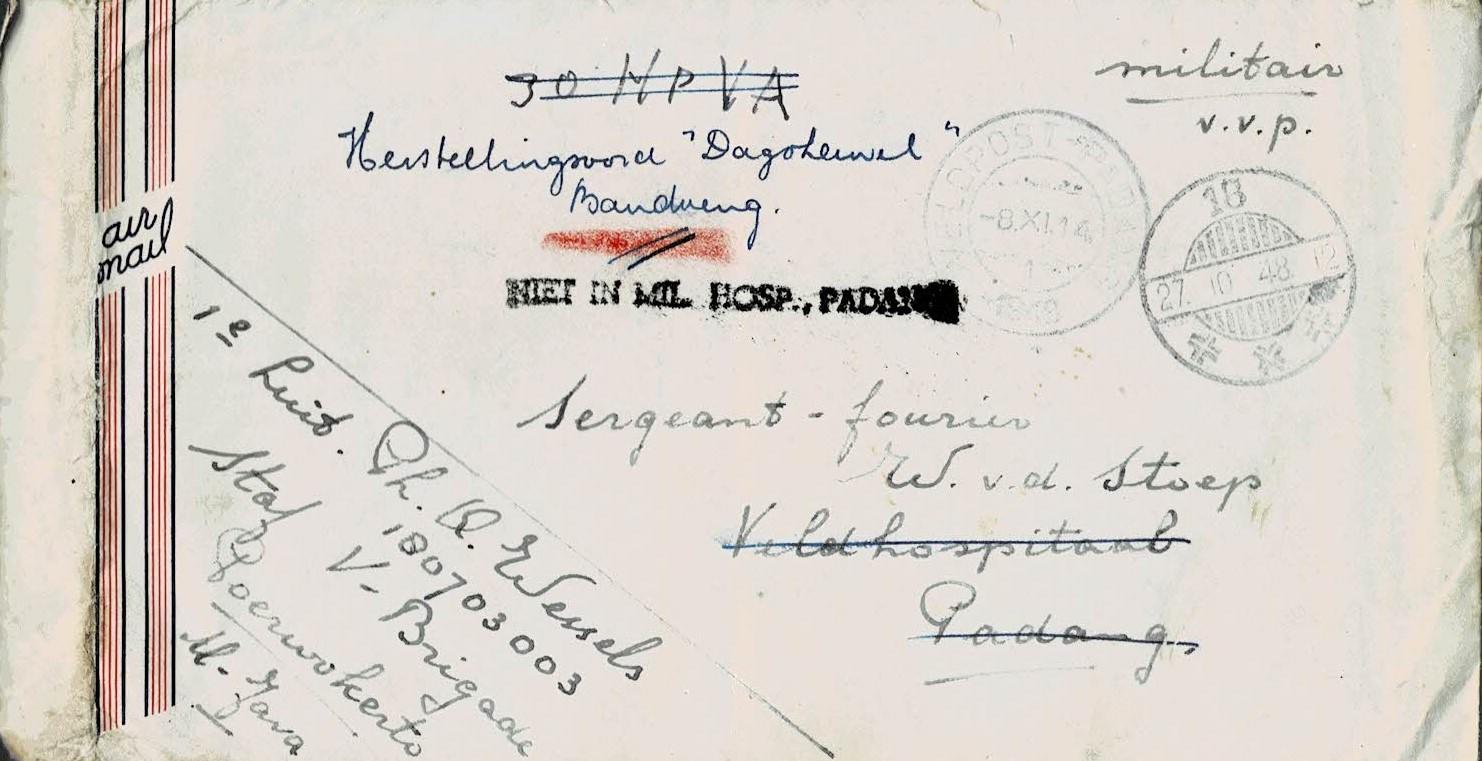 air
mail
militair
v.v.p.
30 HPVA
Herstellingsoord "Dagoheuvel"
Bandoeng.
NIET IN MIL. HOSP., PADANG
VELDPOST-PADANG
-8.XI.14
18
27. 10 48. 12
Sergeant-fourier
W. v.d. Stoep
Veldhospitaal
Padang.
1e Luit. Ph. Q. Wessels
180703003
Staf V-Brigade
Poerwokerto
M. Java